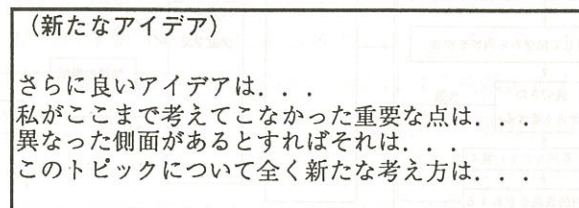 （新たなアイデア）
さらに良いアイデアは．．．
私がここまで考えてこなかった重要な点は．．．
異なった側面があるとすればそれは．．．
このトピックについて全く新たな考え方は．．．